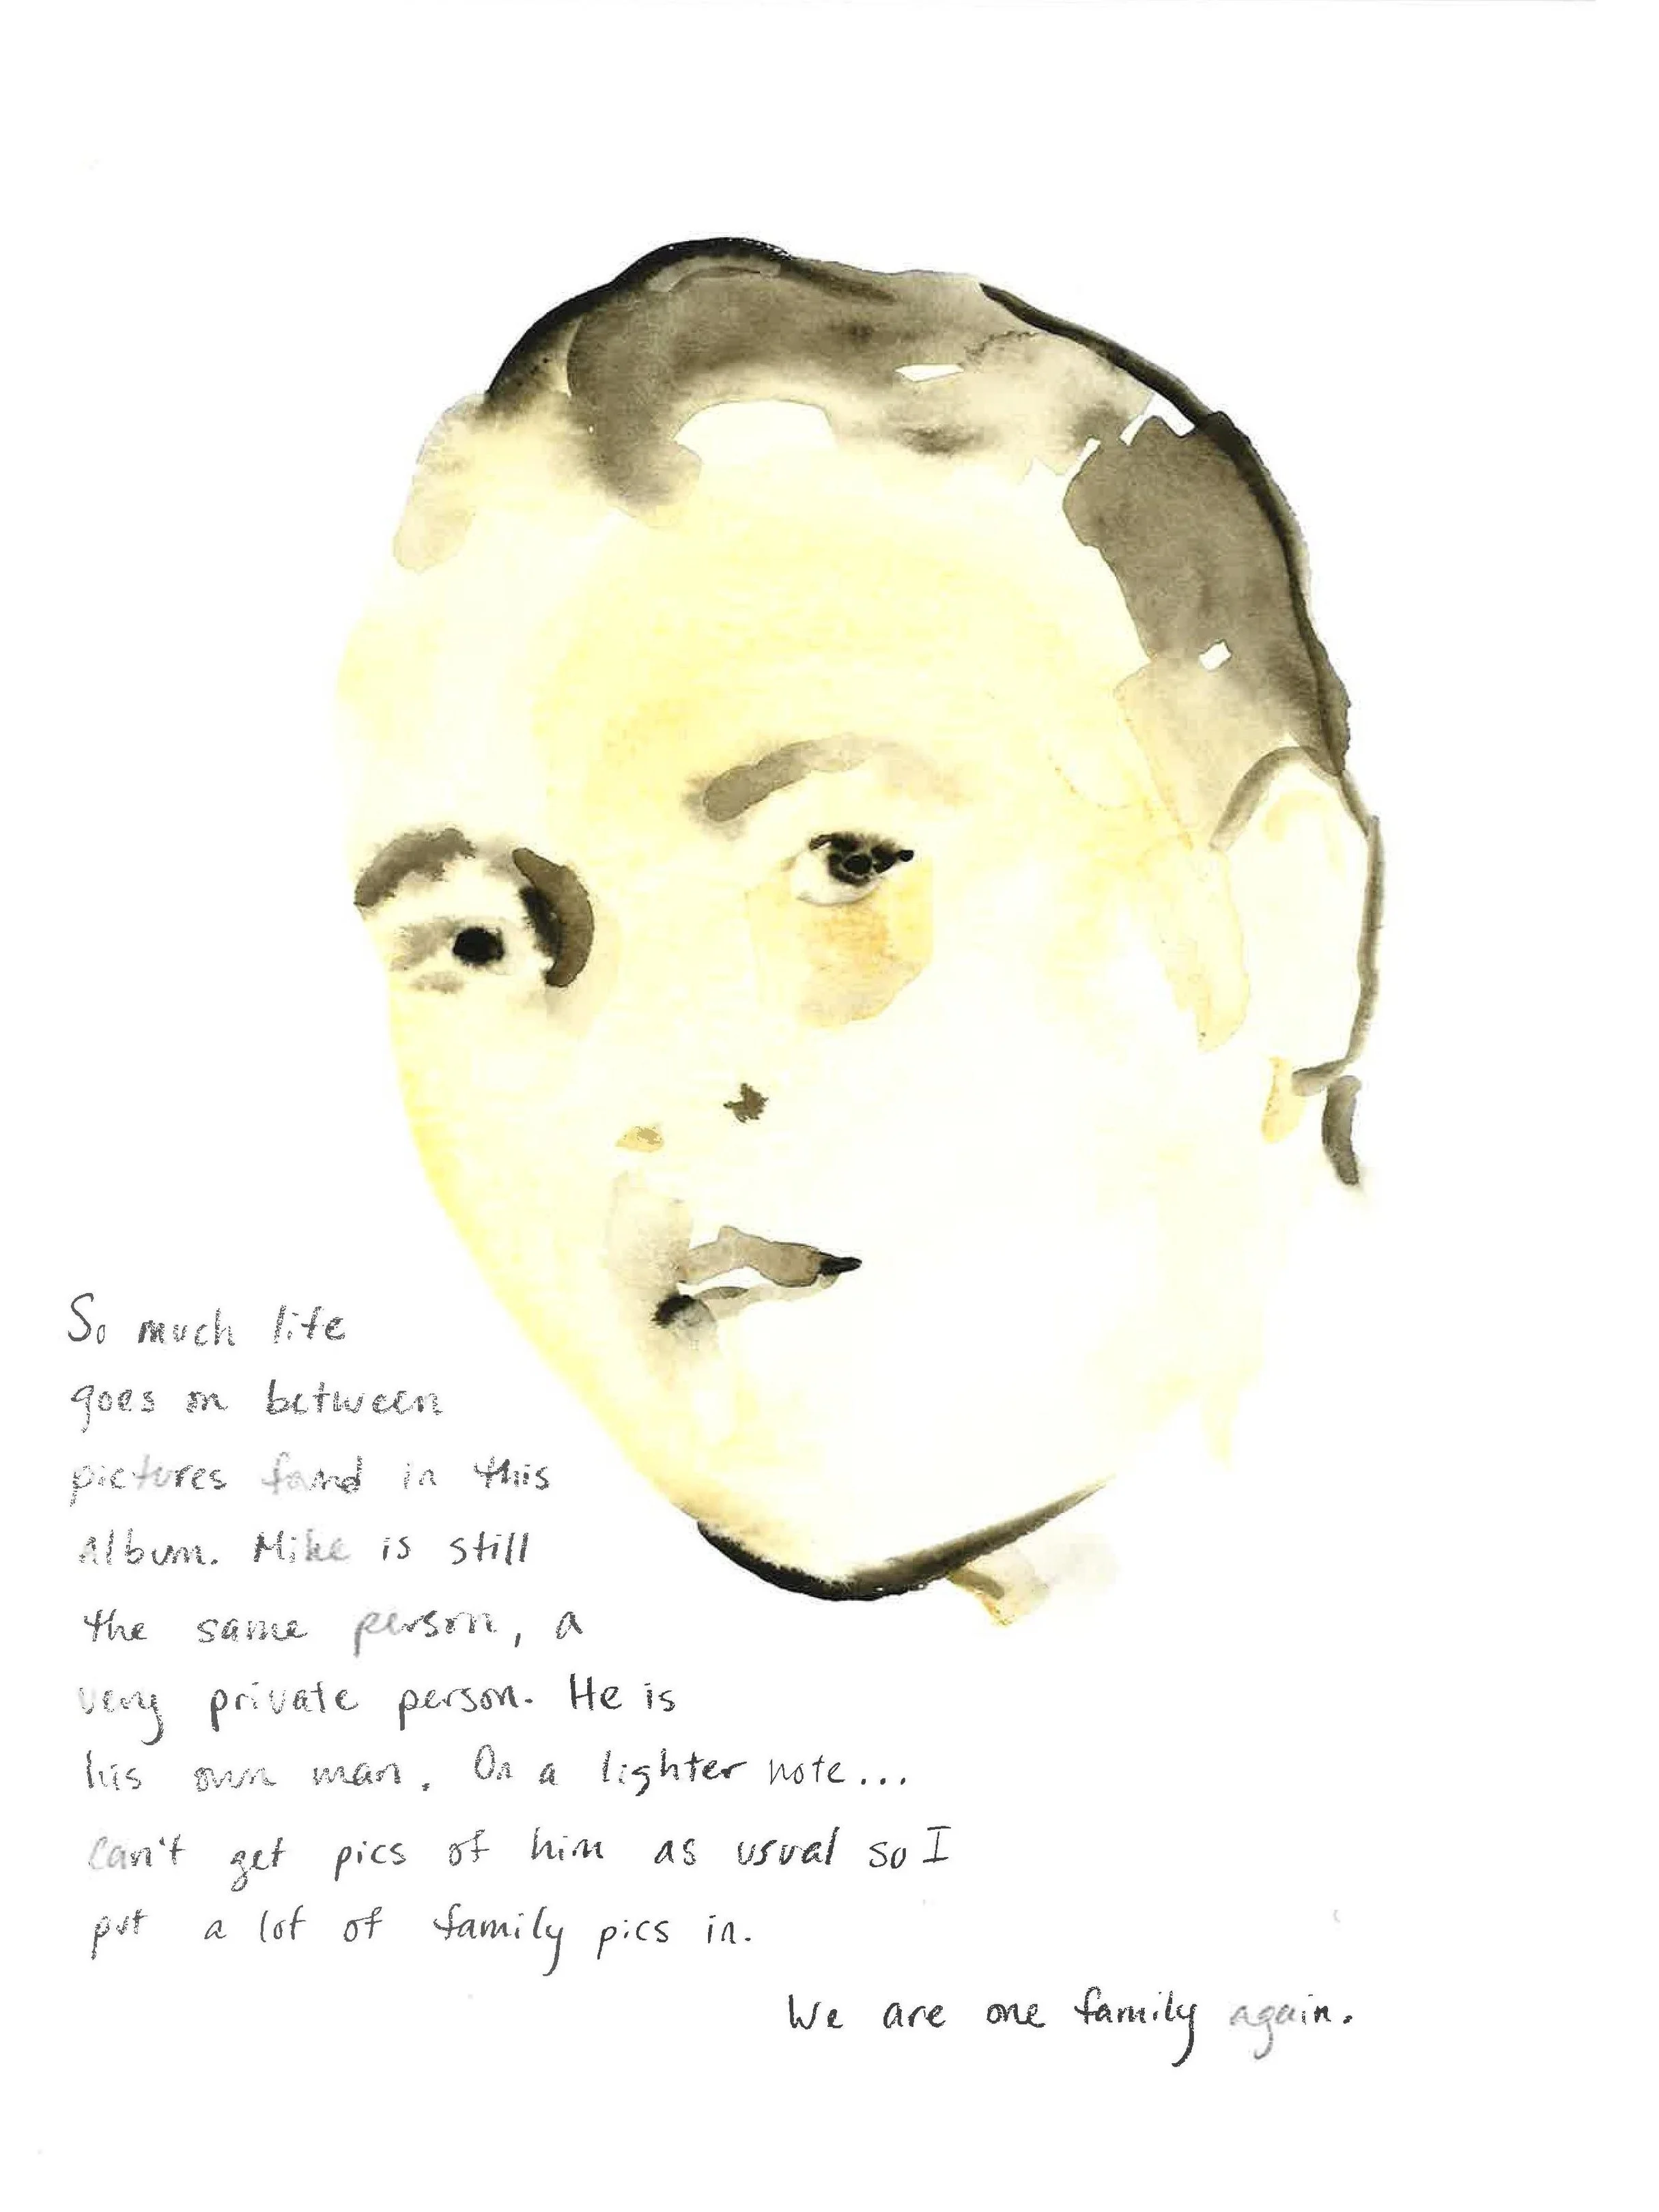 So much life
goes on between
pictures found in this
album. Mike is still
the same person, a
very private person. He is
his own man. On a lighter note...
Can't get pics of him as usual so I
put a lot of family pics in.
We are one family again.